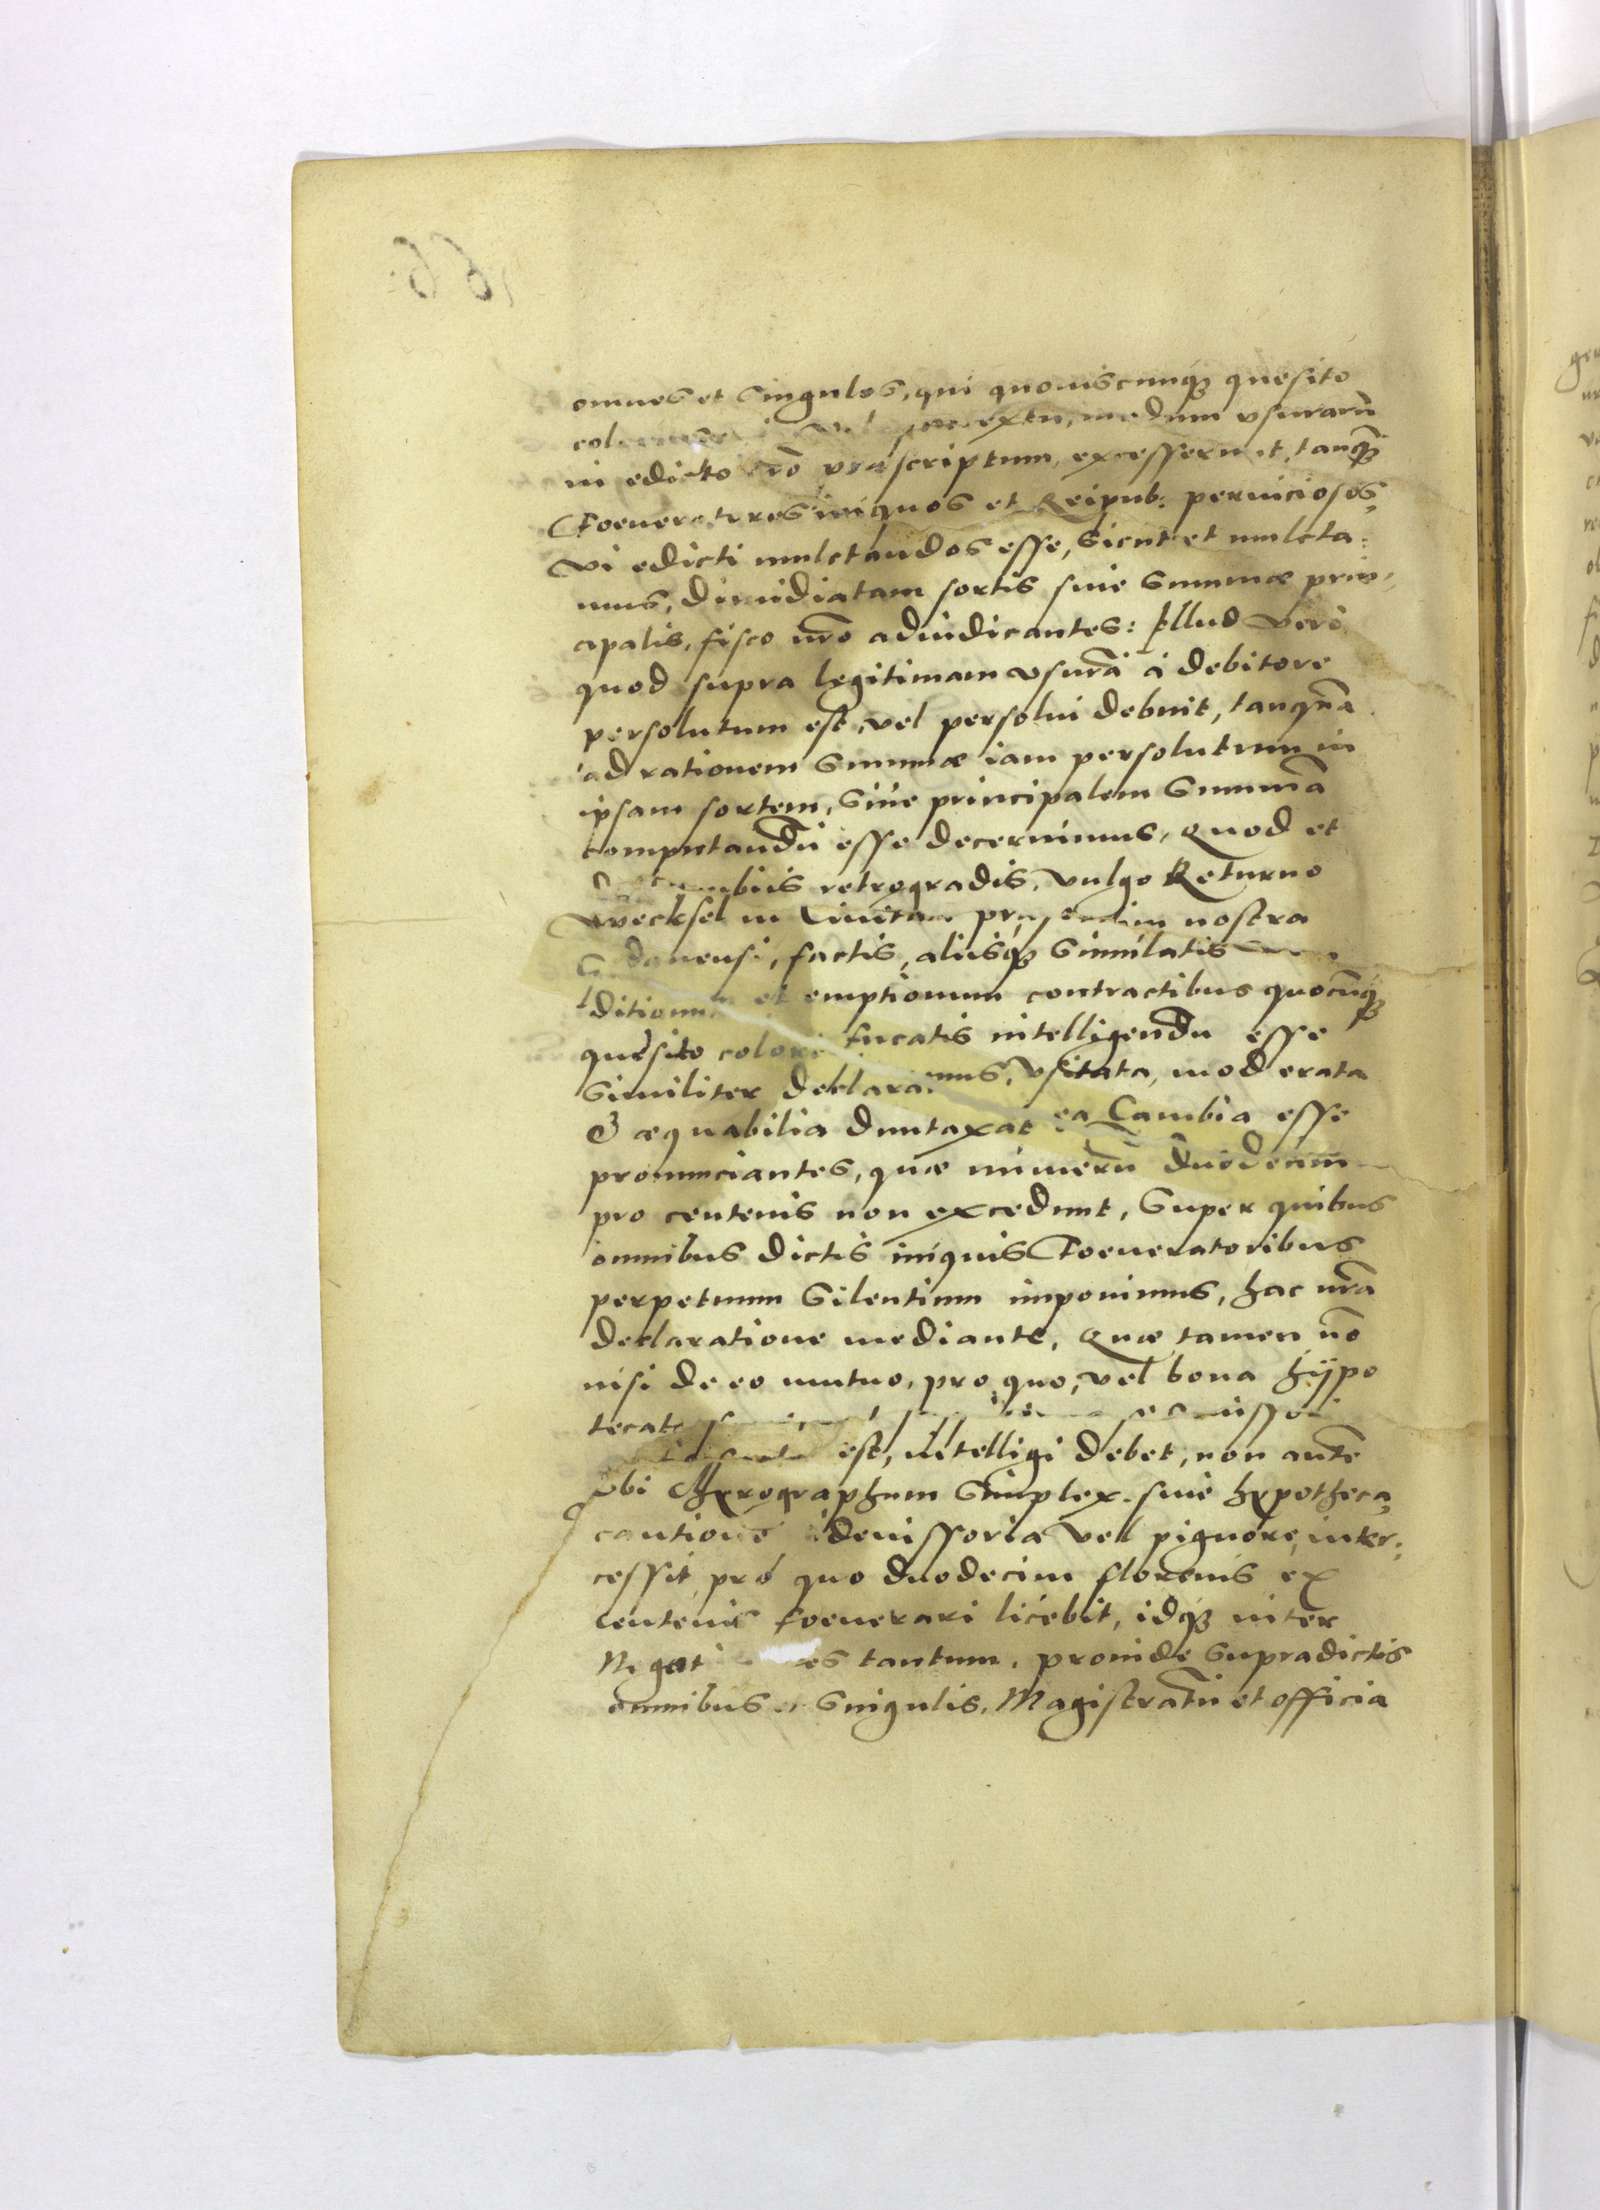 omnes et singulos, qui quouiscunq3 quesito
modum vsurarũ
in edicto nrõ præscriptum, excesserunt, tanq3
Foeneratores iniquos et Reipub: perniciosos,
vi edicti mulctandos esse, sicut et mulcta:
mus, dimidiatam sortis siue summæ prin,
cipalis, fisco nrõ adiudicantes: Illud vero
quod supra legitimam vsurã à debitore
persolutum est, vel persolui debuit, tanqua
ad rationem summæ iam persolutum in
ipsam sortem, siue principalem summã
computandũ esse decernimus, Quod et
retrogradis, vulgo Returno
Wecksel in Ciuitate præsertim nostra
Gedanensi, factis, alijsq3 simulatis
ditionum et emptionum contractibus quocũq3
quesito colore fucatis intelligendũ esse
similiter declaramus, vsitata, moderata
& æquabilia duntaxat ea Cambia esse
pronunciantes, quæ numerũ duodecim
pro centenis non excedunt, Super quibus
omnibus dictis iniquis Foeneratoribus
perpetuum silentium imponimus, hac nrã
declaratione mediante, Quæ tamen nõ
nisi de eo mutuo, pro quo, vel bona hÿpo
tecat
est, intelligi debet, non autẽ
vbi Chyrographum simplex. siue hypotheca,
cautione euissoria vel pignore, inter:
cessit, pro quo duodecim florenis ex
centenis foenerari licebit, idq3 inter
tantum, prouide supradictis
omnibus et singulis, Magistratũ et officia